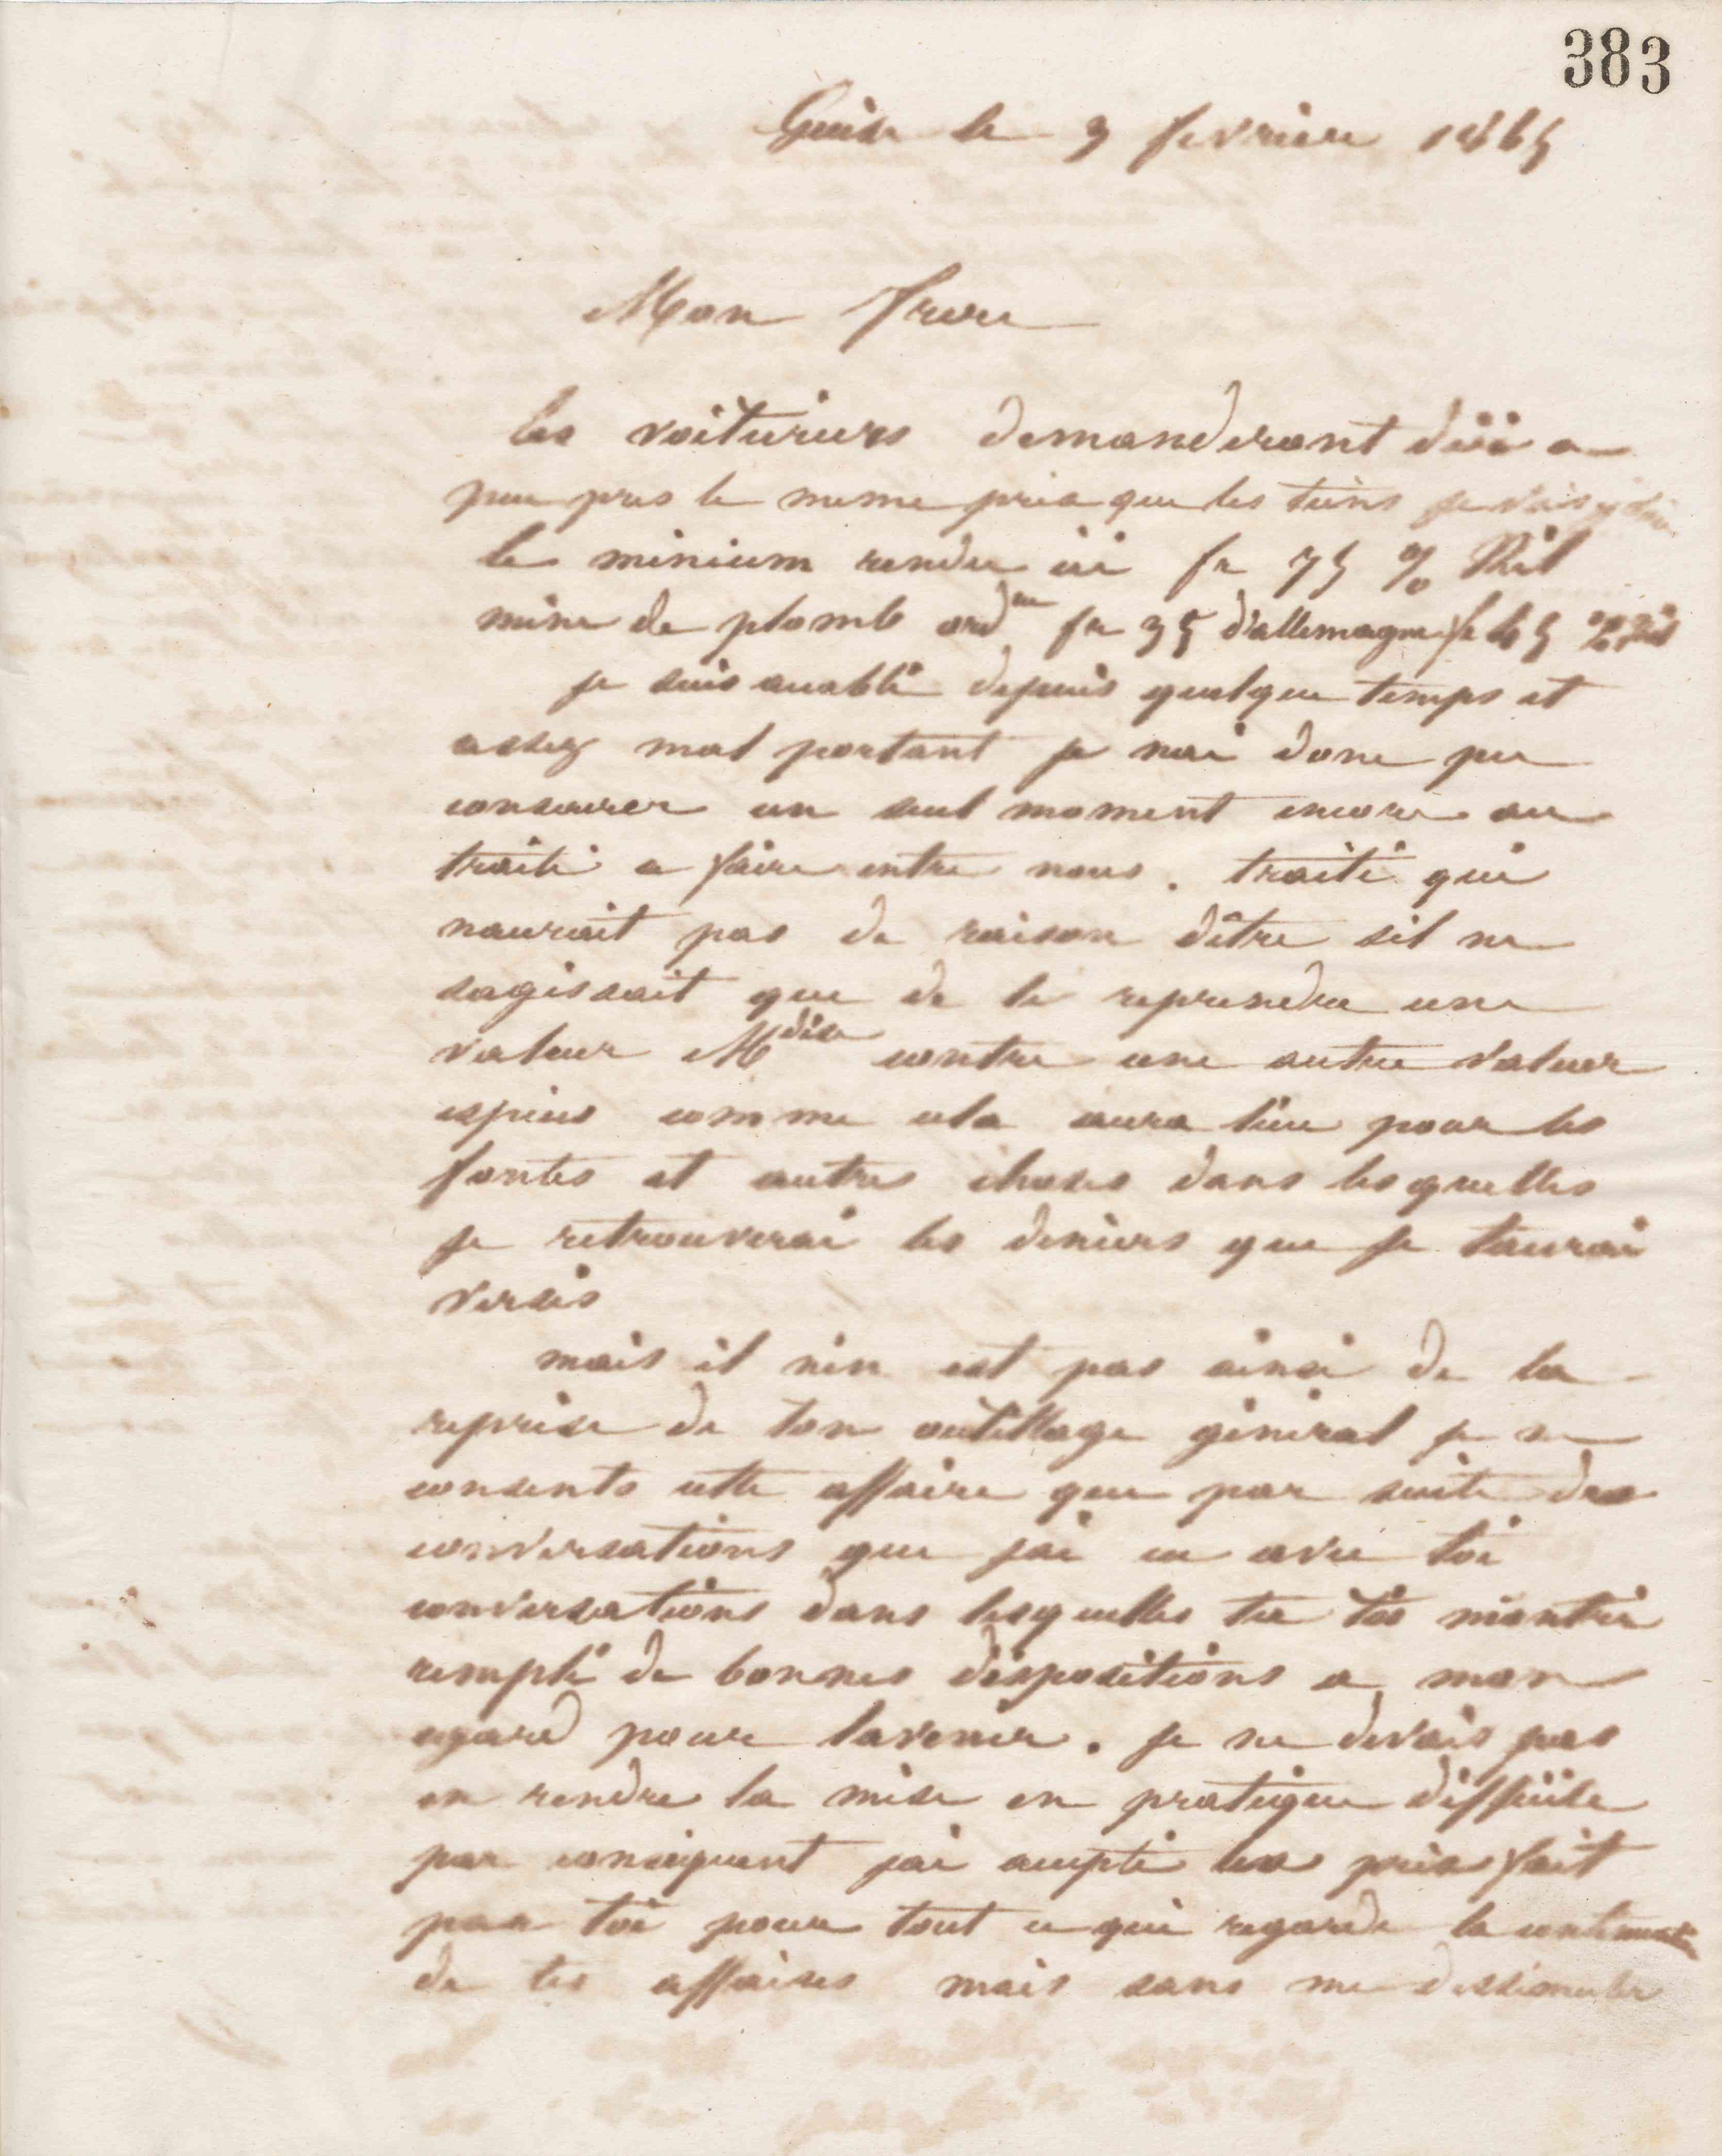 383
Guise le 3 fevrier 1865
Mon frere
les voituriers demanderont dici a
peu pres le meme prix que les tiens je vais
le minium rendu ici fr 75 % Kil
mine de plomb ord re fr 35 d'allemagne fr 45 % Kil
je suis accablé depuis quelque temps et
assez mal portant je nai donc pu
consacrer un seul moment encore au
traité a faire entre nous. traité qui
naurait pas de raison dêtre sil ne
sagissait que de te reprendre une
valeur Mdise contre une autre valeur
especes comme cela aura lieu pour les
fontes et autres choses dans lesquelles
je retrouverai les deniers que je taurai
versés
mais il nen est pas ainsi de la
reprise de ton outillage général je ne
consents cette affaire que par suite des
conversations que jai eu avec toi
conversations dans lesquelles tu tes montré
rempli de bonnes dispositions a mon
egard pour lavenir. je ne devais pas
en rendre la mise en pratique difficile
par consequent jai accepté les prix fait
par toi pour tout ce qui regarde la continuation
de tes affaires mais sans me dissimuler